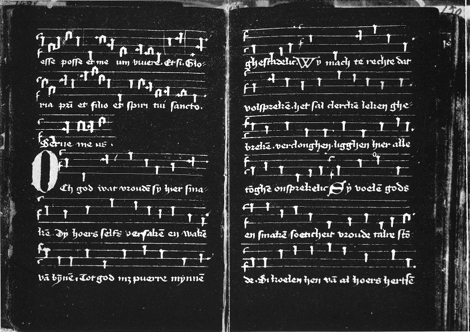 esse posse et me um vivere. Et si. Glo
ria pr̄i et filio et spiri tui sancto.
Serue me us.
Och god wat vroudē sȳ hier sma
kē. Dȳ hoers selfs versakē en wakē
vā bȳnē. Tot god mȳ puerre mȳnnē
ghestadelic Wȳ mach te rechte dat
volsprekē. het sal clerckē leken ghe
brekē. verdonghen. ligghen hier alle
tōghē onsprekelic Sȳ voelē gods
en smakē soeticheit vroude talre stō
de. Si koelen hen vā al hoers hertsē